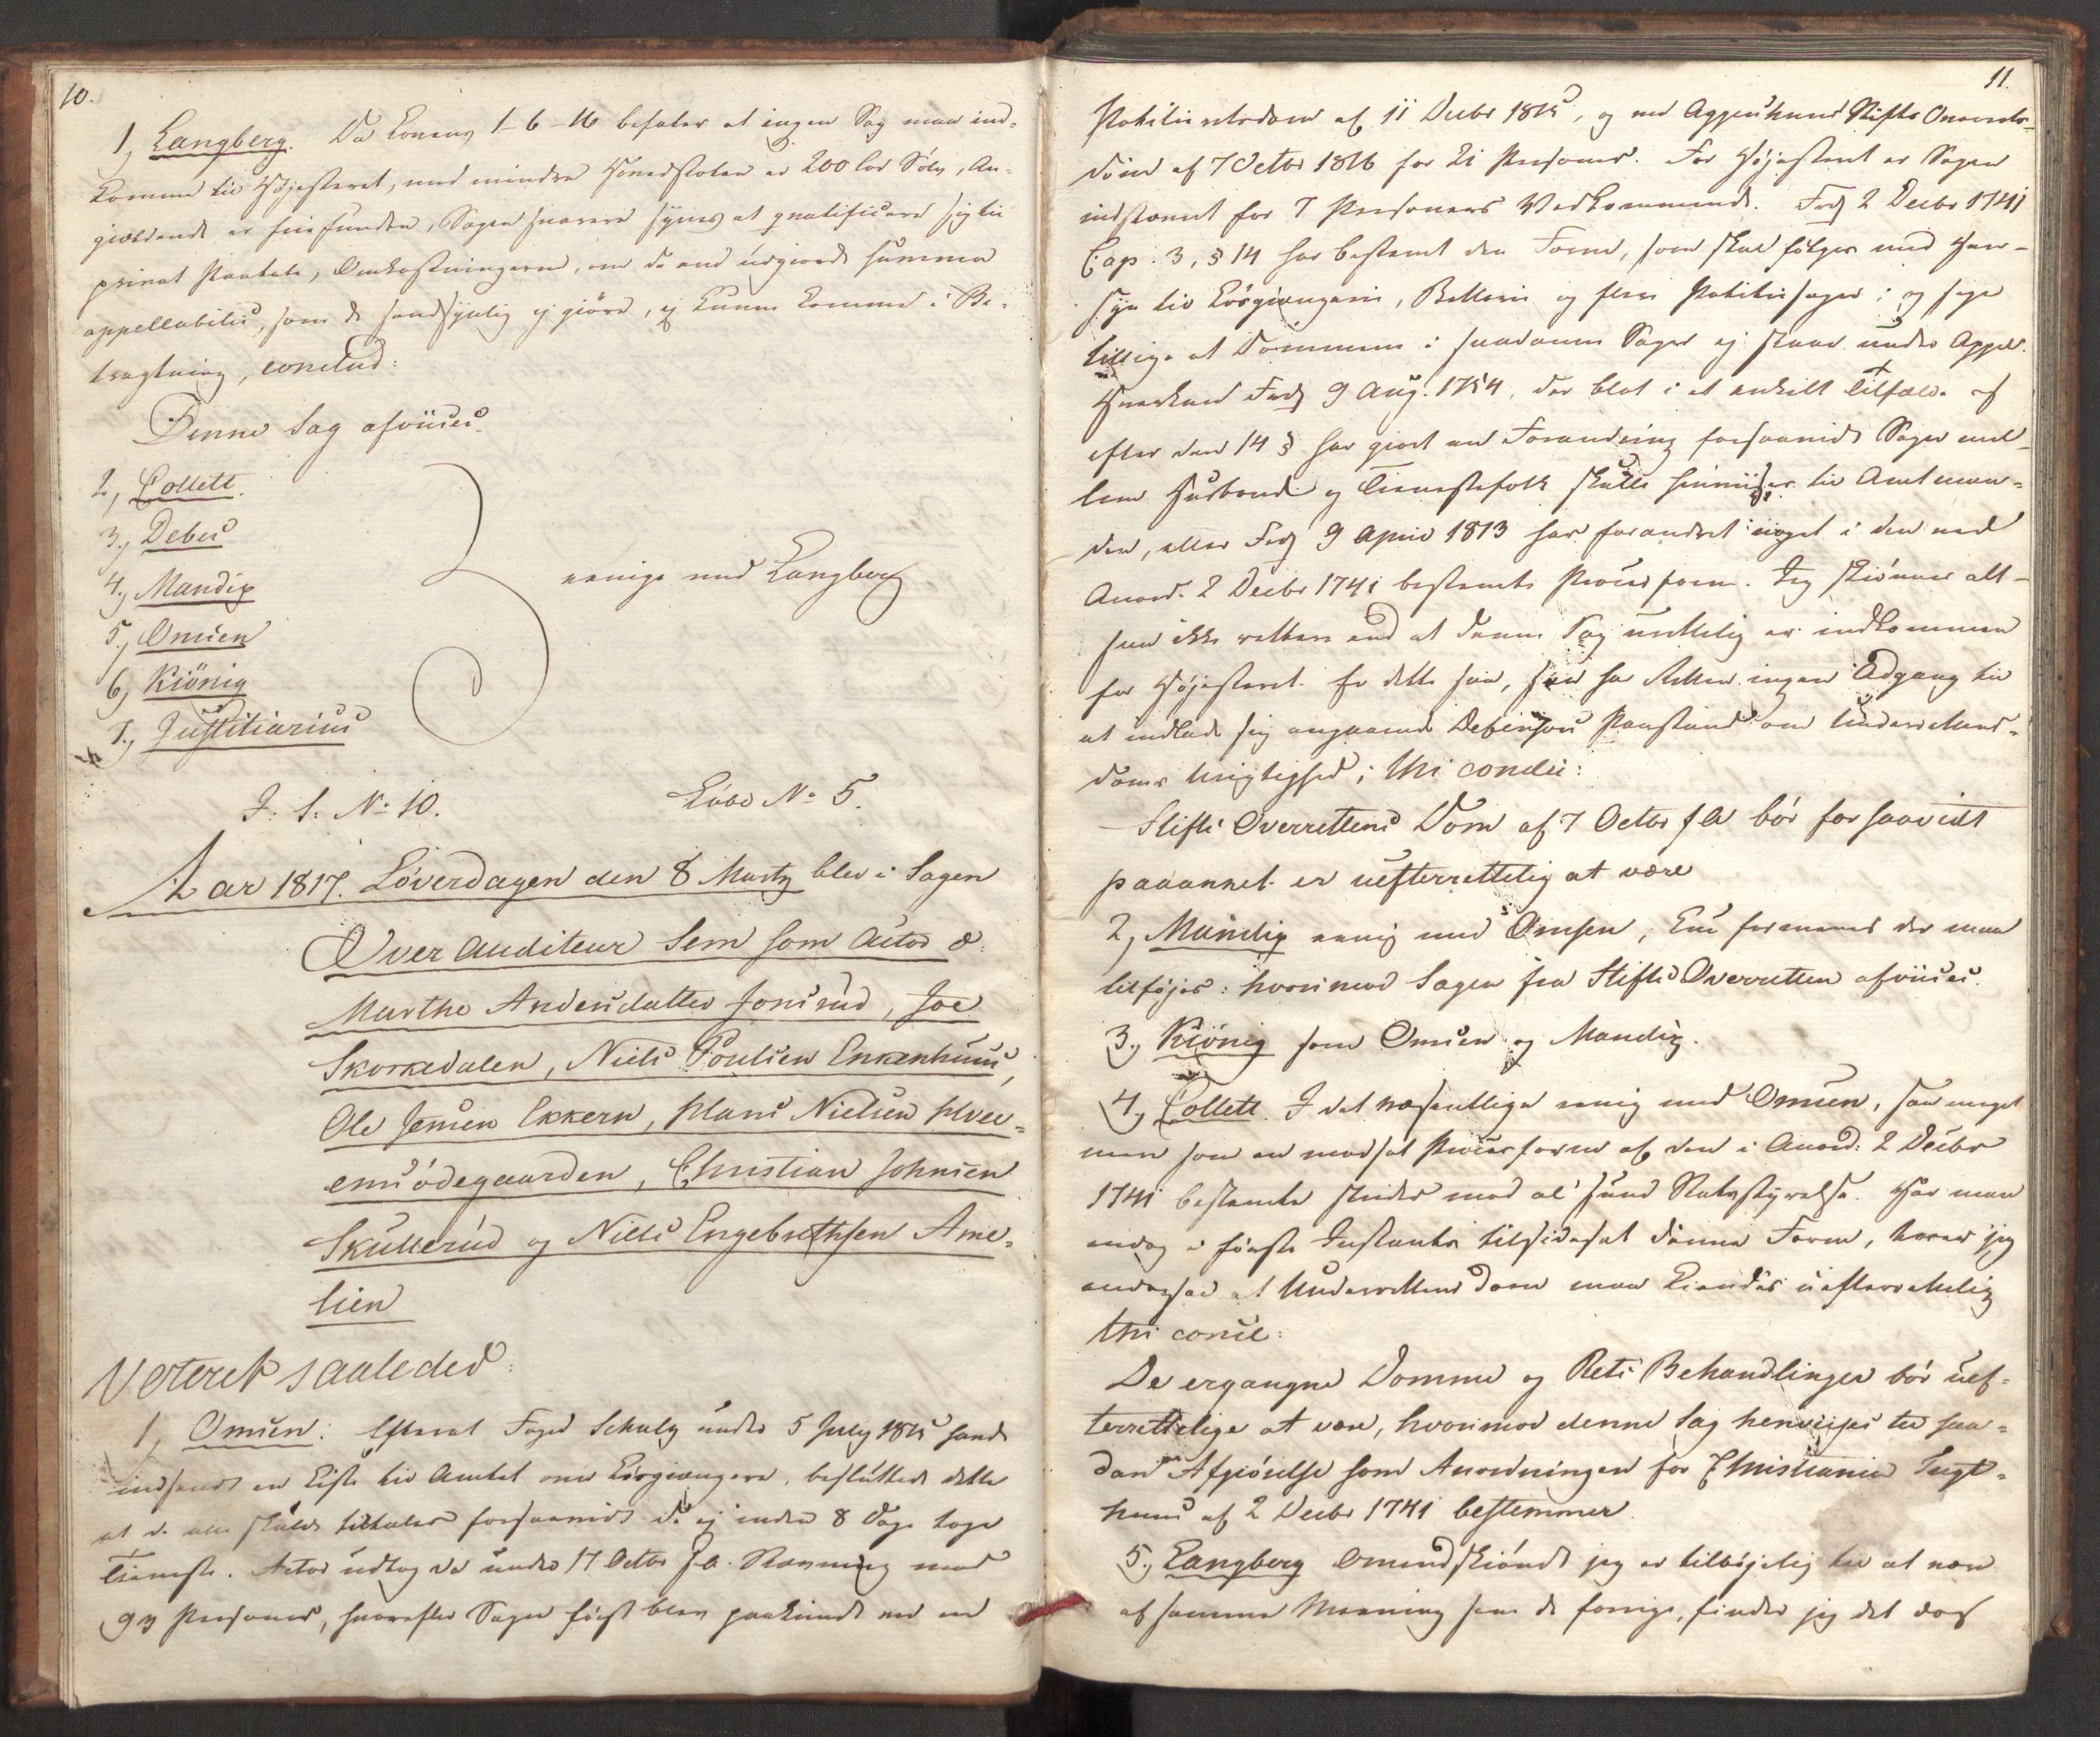 10.
1, Langberg. Da Lovens 1-6-16 befaler at ingen Sag maa ind-
komme til Højesteret, med mindre Hovedstolen er 200 Lod Sølv, An-
gieldende er frifunden, Sagen snarere synes at qualificere sig til
privat Paatale, Omkostningerne, om de end udgiorde summa
appellabilis, som de sandsynlig ej giøre, ej kunne komme i Be-
tragtning, conclud:
Denne Sag afviises.
2, Collett.
3, Debes
4, Mandix
5, Omsen
6, Kiönig
7, Justitiarius
eenige med Langberg
J: S: No 10.
Løbe No 5.
Aar 1817. Löverdagen den 8 Martz blev i Sagen
Over Auditeur Sem som Actor
Marthe Andersdatter Jonsrud, Joe
Skorkedalen, Niels Poulsen Enkenhuus,
Ole Jensen Ekkern, Hans Nielsen Hvee-
emsödegaarden, Christian Johnsen
Skullerud og Niels Engebrethsen Ame-
lien
Voteret saaledes:
1, Omsen: Efterat Foged Schulz under 5 July 1815 havde
indsendt en Liste til Amtet om Løsgiængere, besluttede dette
at de alle skulde tiltales forsaavidt de ej inden 8 Dage toge
Tieneste. Actor udtog da under 17 Octbr s. A. Stævning mod
93 Personer, hvorefter Sagen først blev paakiendt ved en
11.
Politieretsdom af 11 Decbr 1815, og ved Aggershuus Stifts Overrets-
dom af 7 Octbr 1816 for 21 Personer. For Højesteret er Sagen
indstævnt for 7 Personers Vedkommende. Fr 2 Decbr 1741
Cap. 3, § 14 har bestemt den Form, som skal følges med Hen-
syn til Løsgiængerie, Betlerie og flere Politiesager; og siger
tillige at Dommene i saadanne Sager ej staae under Appel.
Hverken Fr 9 Aug. 1754, der blot i et enkelt Tilfælde af
efter den 14 § har giort en Forandring forsaavidt Sager mel-
lem Husbond og Tienestefolk skulle henviises til Amtman-
den, eller Fr 9 April 1813 har forandret noget i den ved
Anord. 2 Decbr 1741 bestemte Procesform. Jeg skiønner alt-
saa ikke rettere end at denne Sag urettelig er indkommen
for Højesteret. Er dette saa, saa har Retten ingen Adgang til
at indlade sig angaaende Defensors Paastand om Underretts-
doms Urigtighed; thi conclu:
Stifts Overrettens Dom af 7 Octbr f A bör forsaavidt
paaanket er uefterrettelig at være
2, Mandix eenig med Omsen, kun formenes der maa
tilføjes: hvorimod Sagen fra Stifts Overretten afviises.
3, Kiönig som Omsen og Mandix.
4, Collett. I det væsentlige eenig med Omsen, saa meget
meer som en modsat Procesform af den i Anord: 2 Decbr
1741 bestemte strider mod al sund Statsstyrelse. Har man
endog i første Instants tilsidesat denne Form, troer jeg
endogsaa at Underrettens Dom maa kiendes uefterrettelig
thi concl:
De ergangne Domme og Rets Behandlinger bör uef-
terrettelige at være, hvorimod denne Sag henviises til saa-
dan Afgiörelse som Anordningen for Christiania Tugt-
huus af 2 Decbr 1741 bestemmer.
5, Langberg Omendskiøndt jeg er tilbøjelig til at være
af samme Meening som de forrige, finder jeg det dog